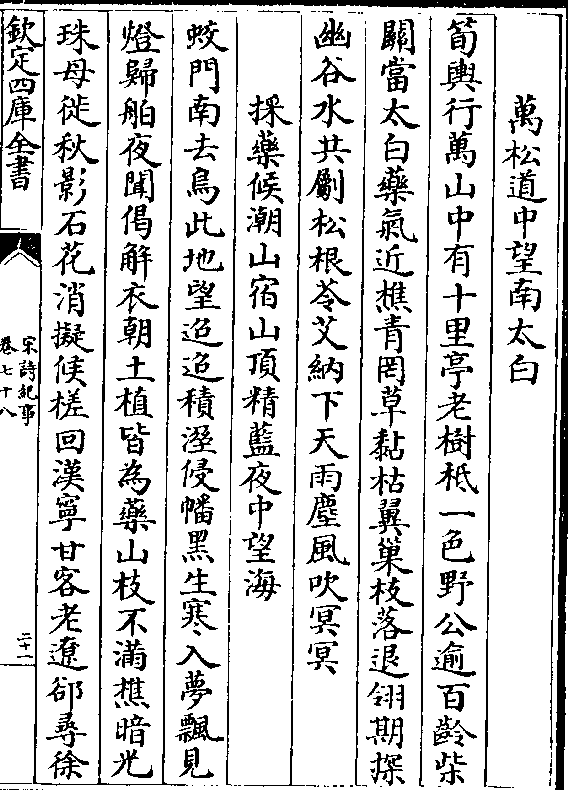 萬松道中望南太白
筍輿行萬山中有十里亭老樹秪一色野公逾百齡柴
關當太白藥氣近樵青罔草黏枯翼巢枝落退翎期探
幽谷水共劚松根苓艾納下天雨塵風吹冥冥
採藥候潮山宿山頂精藍夜中望海
蛟門南去鳥此地望迢迢積溼侵幡黑生寒入夢飄見
燈歸舶夜聞偈解衣朝土植皆為藥山枝不滿樵暗光
珠母徙秋影石花消擬候槎回漢寧甘客老遼郤尋徐
欽定四庫全書
宋詩紀事
卷七十八
二十一